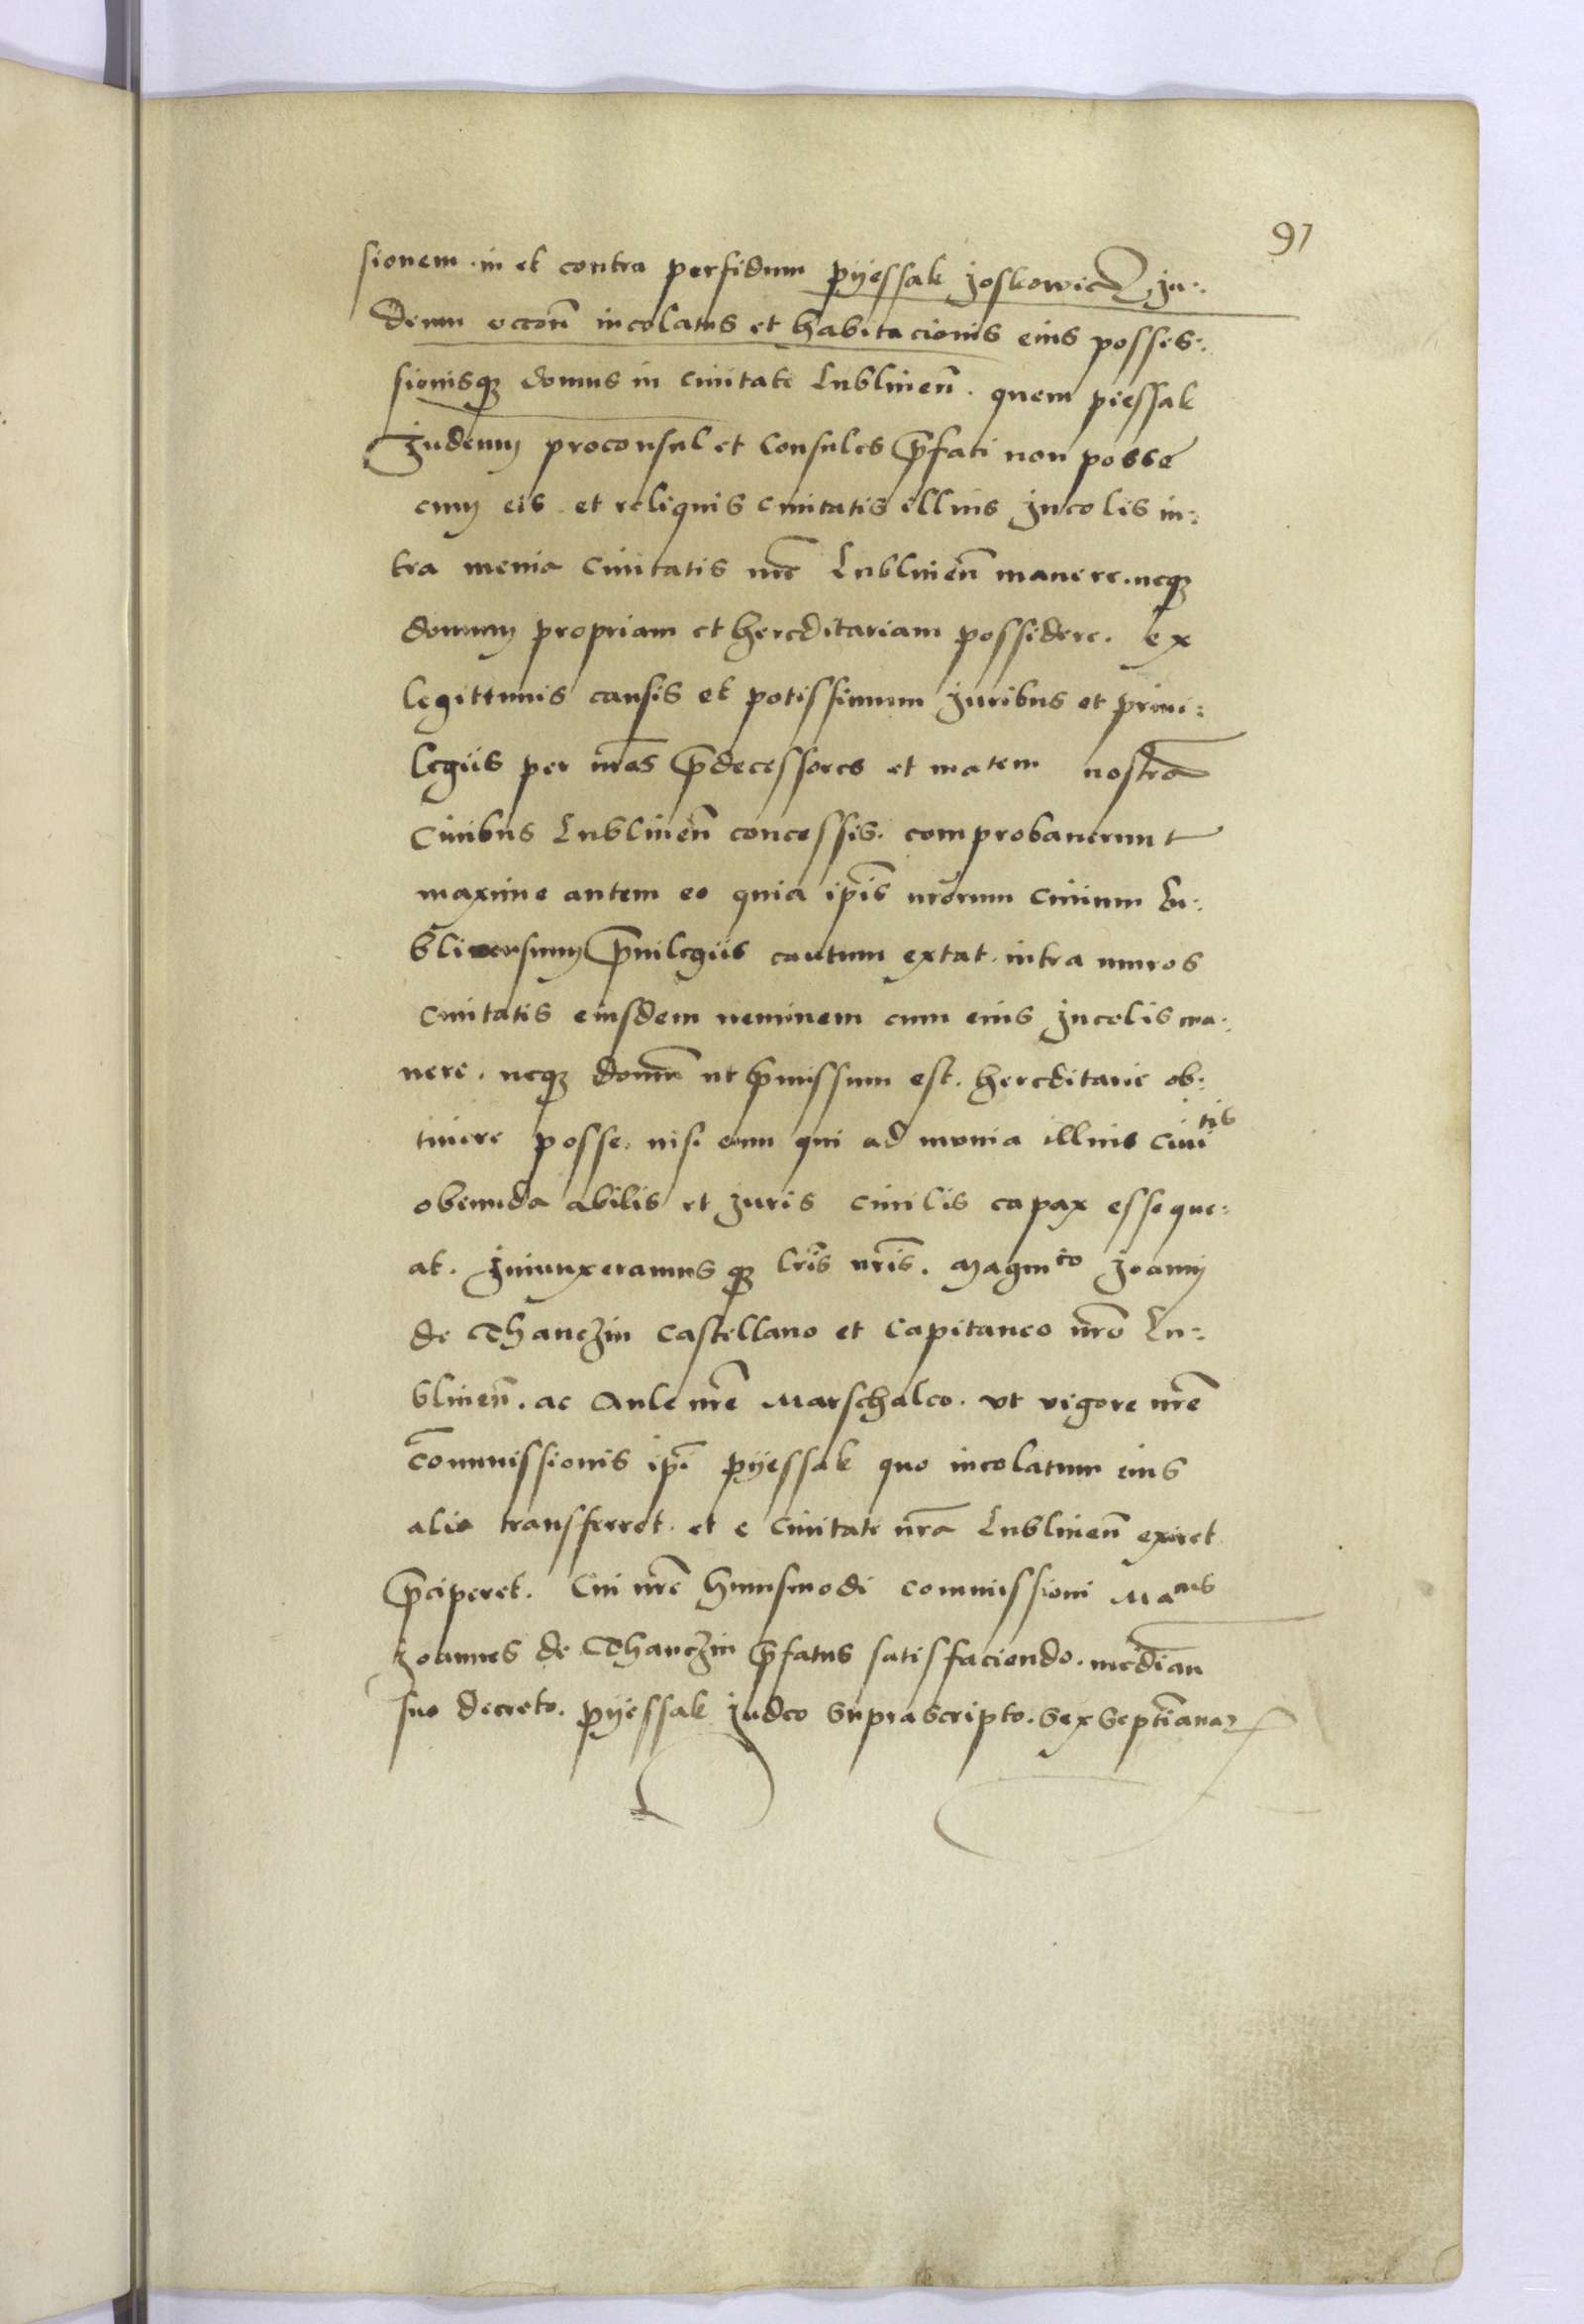 97
sionem. in et contra perfidum pyessak Joskowicz Ju:
deum occoñ incolatus et habitacionis eius posses:
sionisqꝫ domus in ciuitate Lublineñ. quem piessak
Judeum proconsul et Consules p̄fati non posse
cum eis et reliquis Ciuitatis illius Incolis in:
tra menia Ciuitatis nr̄e Lublineñ manere. neqꝫ
domum propriam et hereditariam possidere. ex
legittimis causis et potissimum Juribus et priui:
legiis per nr̄os p̄decessores et matem nostrā
Ciuibus Lublineñ concessis. comprobauerunt
maxime autem eo quia ip̄is nr̄orum Ciuium Lu:
blinensium p̄uilegiis cautum extat. intra muros
Ciuitatis eiusdem neminem cum eius Incolis ma:
nere. neqꝫ domū ut p̄missum est. hereditarie ob:
tinere posse. nisi eum qui ad munia illius Ciuitis
obeunda abilis et Juris Ciuilis capax esse que:
at. Iniunxeramusqꝫ lr̄is nr̄is. Magnico Joanni
de Thanczin Castellano et Capitaneo nr̄o Lu:
blineñ. ac Aule nr̄e Marschalco. vt vigore nr̄e
Cōmissionis ip̄i pyessak quo incolatum eius
alio transferret. et e Ciuitate nr̄a Lublineñ exiret
p̄ciperet. Cui nr̄e huiusmodi commissioni Macus
Joannes de Thanczin p̄fatus satisfaciendo. medīan
suo decreto. pyessak Judeo suprascripto. sex septīanaꝝ